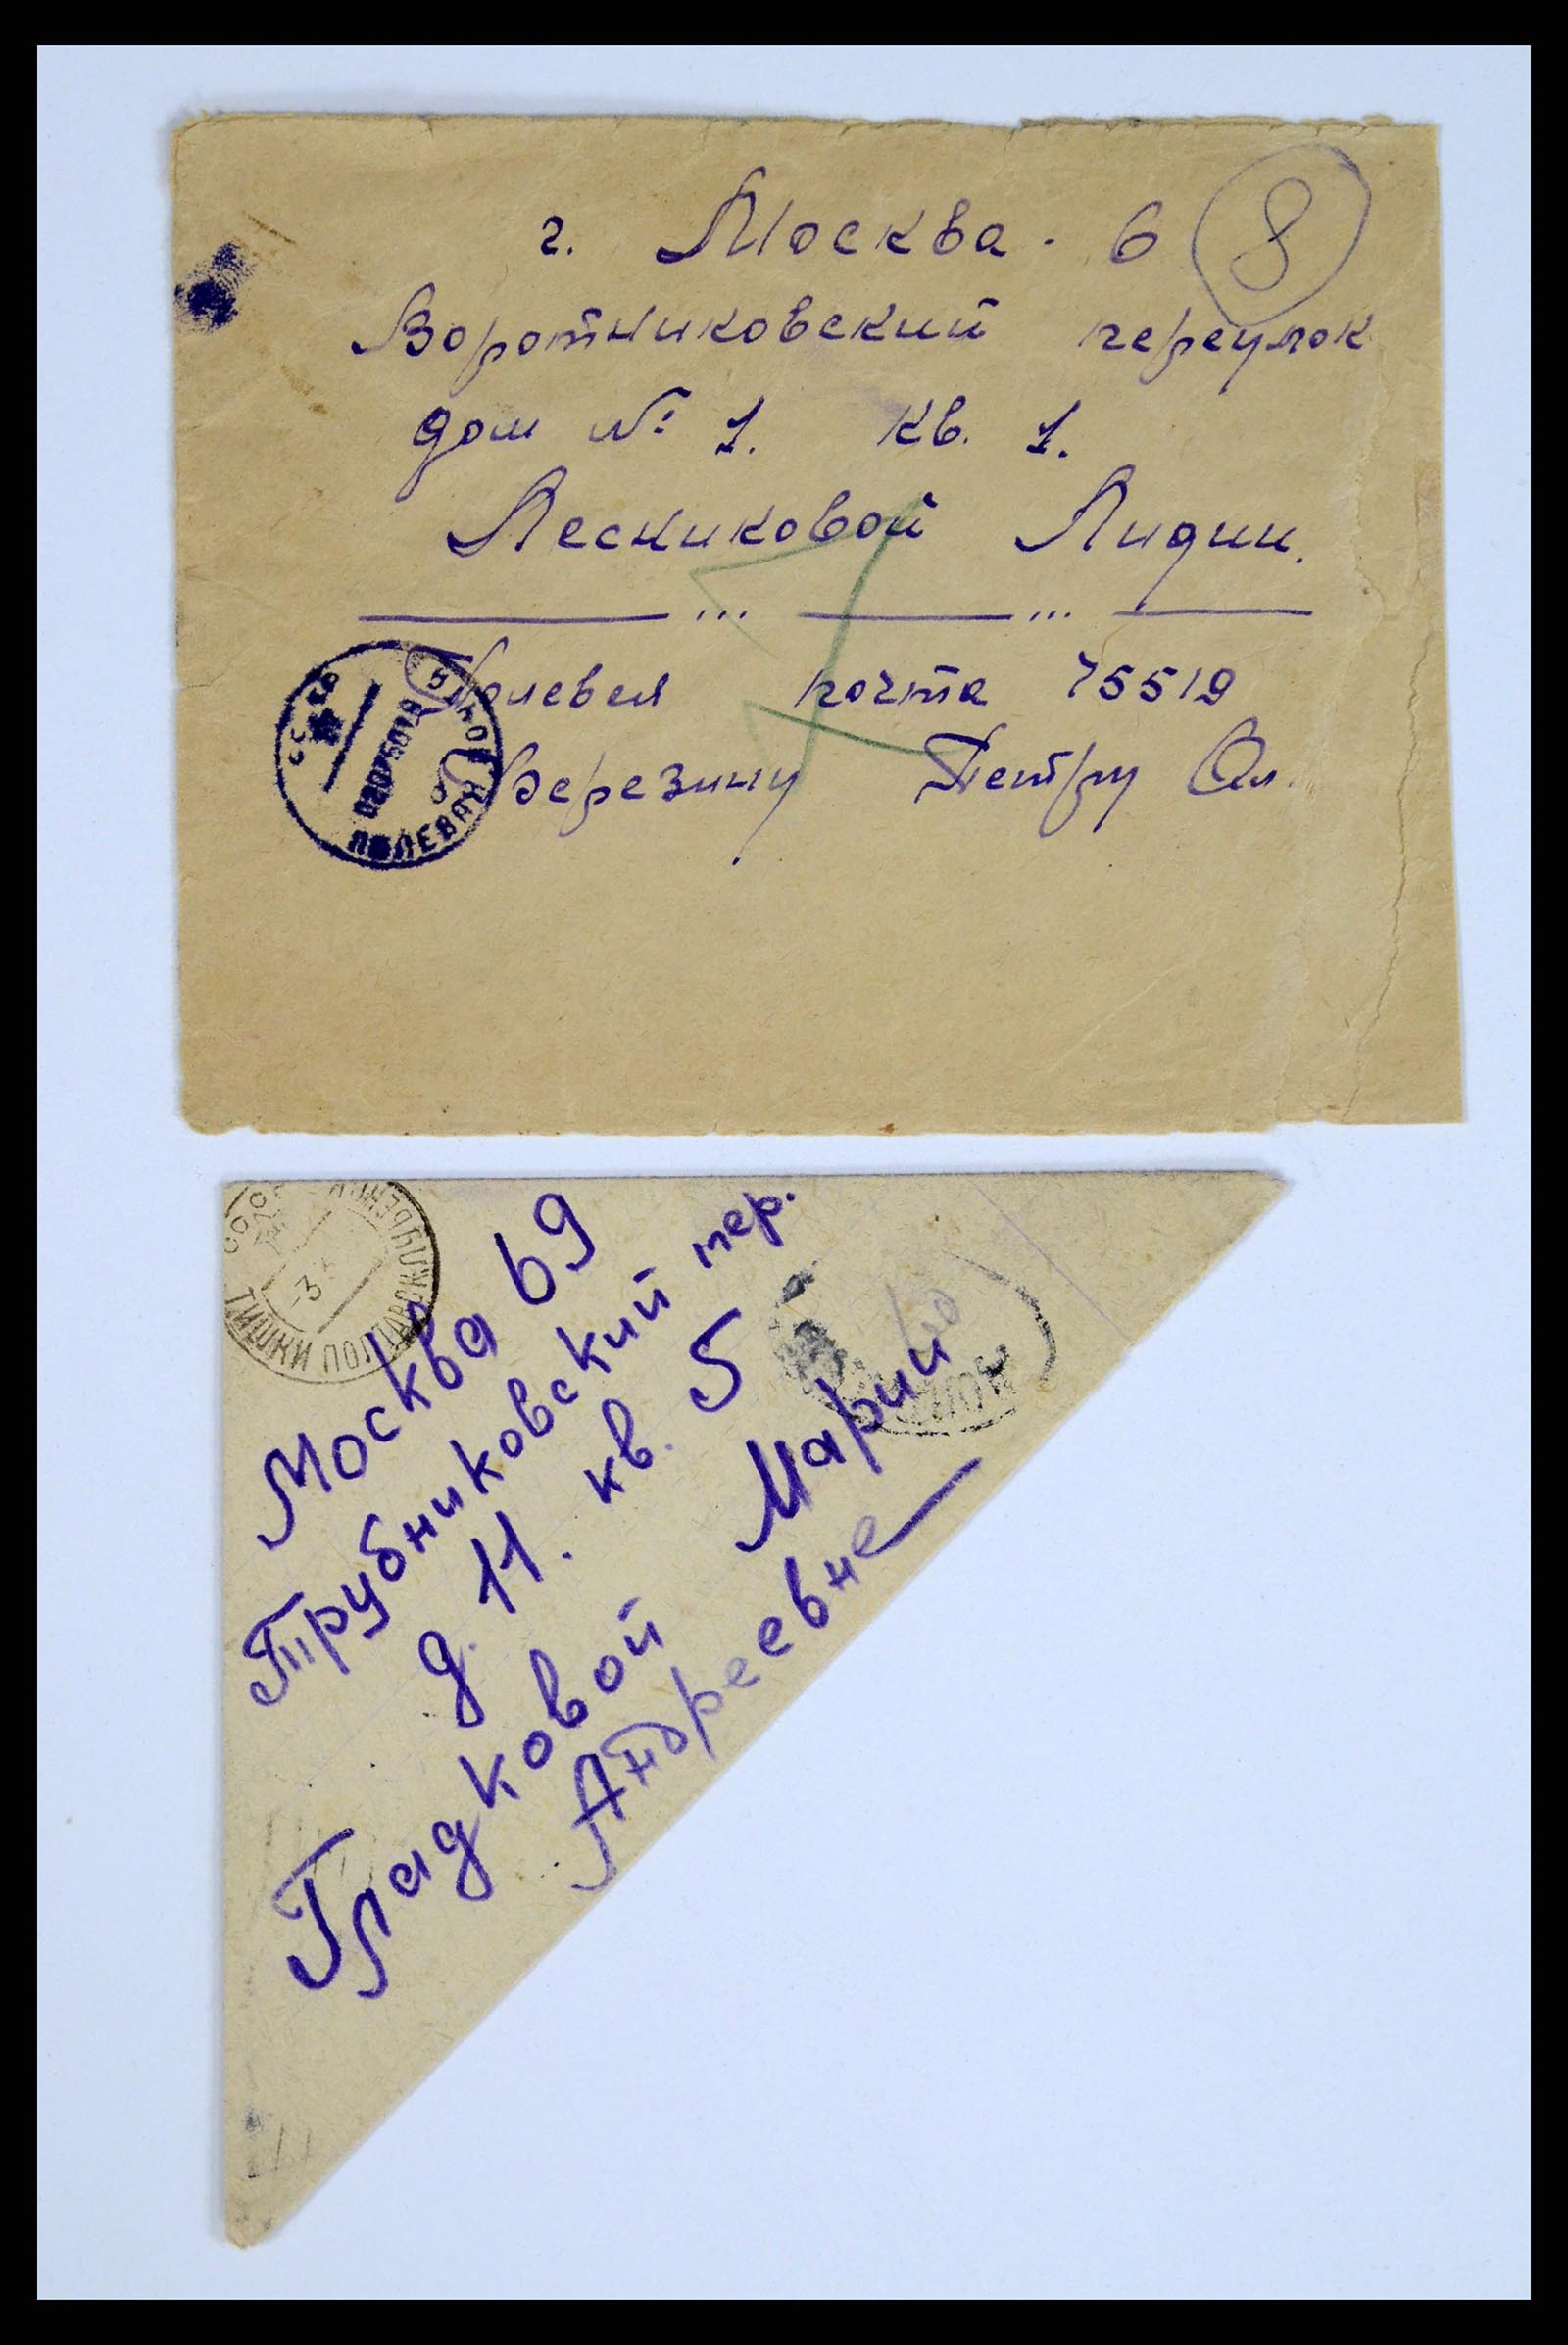 г. Москва - 6 8
Воротниковский переулок
дом № 1. кв. 1.
Лесниковой Лидии.
Полевая почта 75519
Березину Петру Ал.
СССР
ПОЛЕВАЯ ПОЧТА
Москва 69
Трубниковский пер.
д. 11. кв. 5
Гладковой Марии
Андреевне